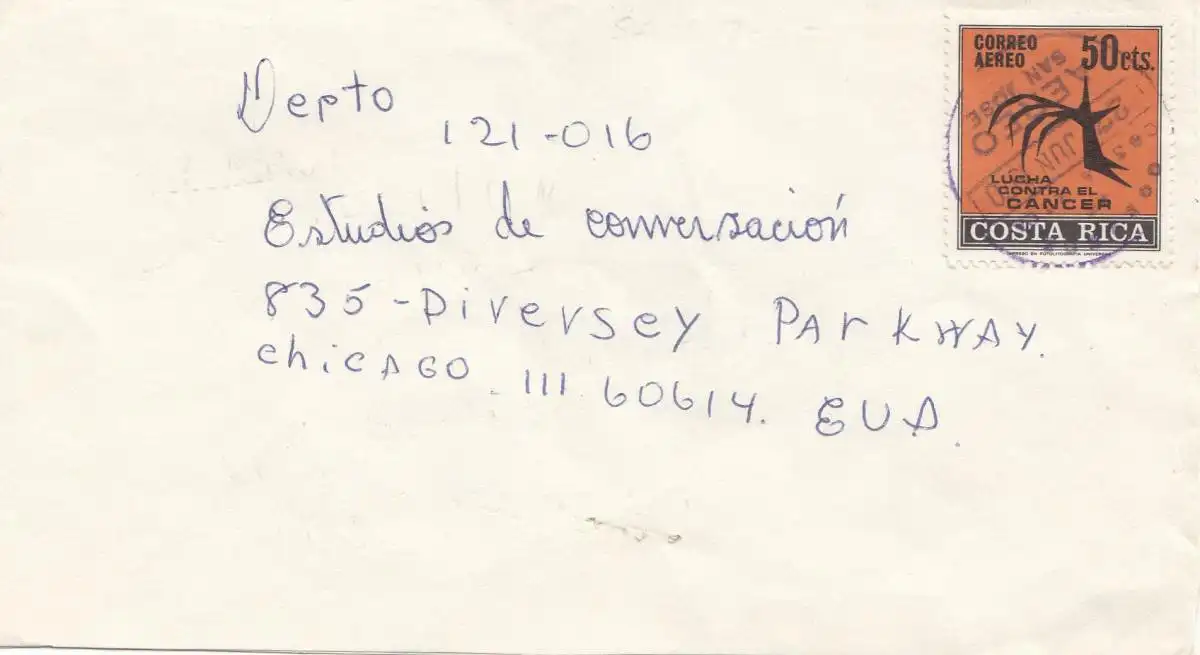 Depto 121-016
Estudios de conversación
835-Diversey Parkway.
chicago. Ill. 60614. EUA.
CORREO AEREO 50cts.
LUCHA
CONTRA EL
CANCER
COSTA RICA
AEREO
SAN JOSE
JUN